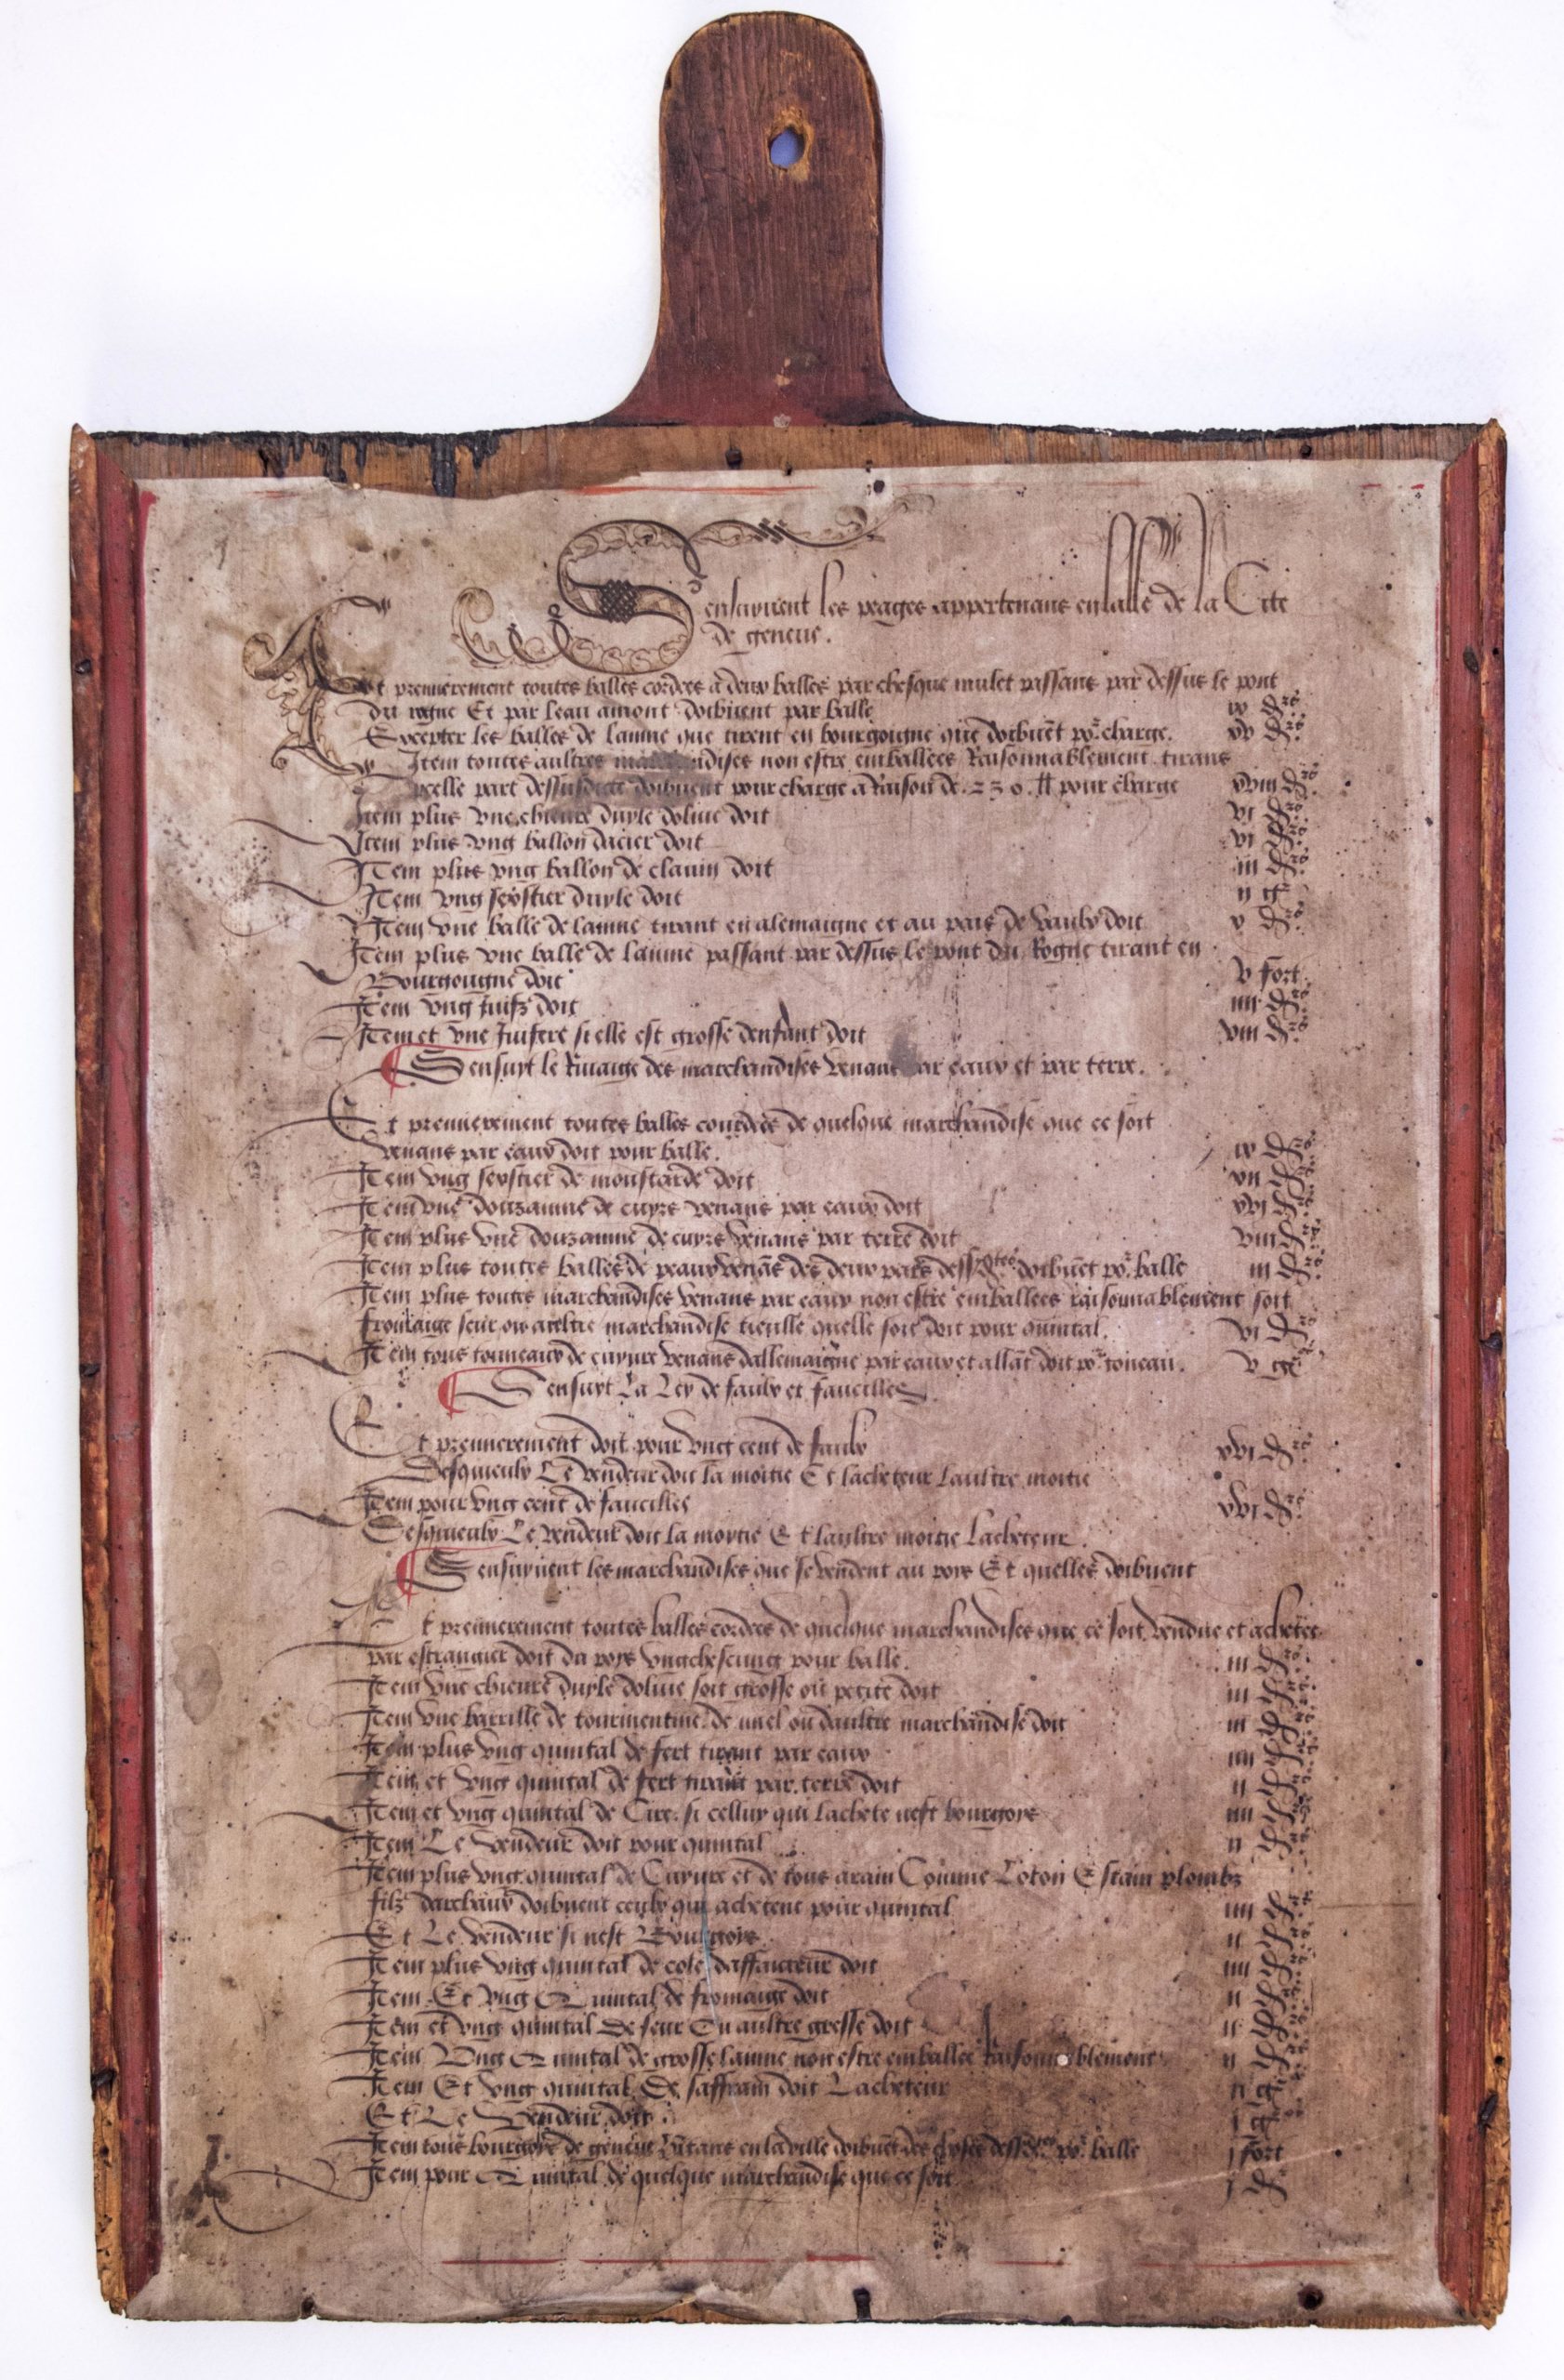 Sensuyuent les peages appertenans en lalle de la Cite
de geneue.
Et premierement toutes balles cordees a deux balles par chesque mulet passans par dessus le pont
du rogne Et par leau amont doibuent par balle ix d
Excepter les balles de lainne que tirent en bourgoigne que doibuēt po charge. xv d
Item toutes aultres marchandises non estre emballees Raisonnablement tirans
Dicelle part dessusdicte doibuent pour charge a Raison de .230. ℔ pour charge xviii d
Item plus vne chieure duyle doliue doit vi d
Item plus vng ballon dacier doit vi d
Item plus vng ballon de clauin doit iii d
Item vng sexstier duyle doit ii g
Item vne balle de lainne tirant en alemaigne et au pais de vaulx doit v d
Item plus vne balle de lainne passant par dessus le pont du Rogne tirant en
Bourgougne doit v fort
Item vng Juifz doit iiii d
Item et vne Juifere si elle est grosse denfant doit viii d
Sensuyt le Riuaige des marchandises venans par eaux et par terre.
Et premierement toutes balles courdees de quelque marchandise que ce soit
venans par eaux doit pour balle. ix d
Item vng sexstier de moustarde doit vii d
Item vne douzainne de cuyrs venans par eaux doit xvi d
Item plus vne douzainne de cuyrs venans par terre doit viii d
Item plus toutes balles de peaux venās des deux pars dessdtes doibuēt po balle iii d
Item plus toutes marchandises venans par eaux non estre emballees raisonnablement soit
fromaige seur ou aultre marchandise tieulle quelle soit doit pour quintal. vi d
Item tous tonneaux de cuyure venans dallemaigne par eaux et allāt doit po toneau. v g
Sensuyt La Ley de faulx et faucilles
Et premierement doit pour vng cent de faulx xvi d
Desquieulx Le vendeur doit la moitie Et lacheteur laultre moitie
Item pour vng cent de faucilles xvi d
Desquieulx Le vendeur doit la moytie Et laultre moitie Lacheteur.
Sensuyuent les marchandises que se vendent au pays Et quelles doibuent
Et premierement toutes balles cordees de quelque marchandises que ce soit vendue et achetee
par estrangier doit du pays vngchescung pour balle. iii d
Item vne chieure duyle doliue soit grosse ou petite doit iii d
Item vne barrille de tourmentine de miel ou daultre marchandise doit iii d
Item plus vng quintal de fert tirant par eaux iiii d
Item et vng quintal de fert tirant par terre doit ii d
Item et vng quintal de Cire si celluy qui lachete nest bourgoys iiii d
Item Le vendeur doit pour quintal ii d
Item plus vng quintal de Cuyure et de tous arain Comme Loton Estain plombz
filz darchaux doibuent ceulx qui achetent pour quintal iiii d
Et Le vendeur si nest Bourgoys ii d
Item plus vng quintal de cole daffaicteur doit iiii d
Item Et vng Quintal de fromaige doit ii d
Item et vng quintal De seur Ou aultre gresse doit ii d
Item Vng Quintal de grosse lainne non estre emballee Raisonnablement ii d
Item Et vng quintal De saffrain doit Lacheteur ii g
Et Le Vendeur doit j g
Item tous bourgoys de geneue en la ville doibuēt des choses po balle j fort
Item pour Quintal de quelque marchandise que ce soit j d